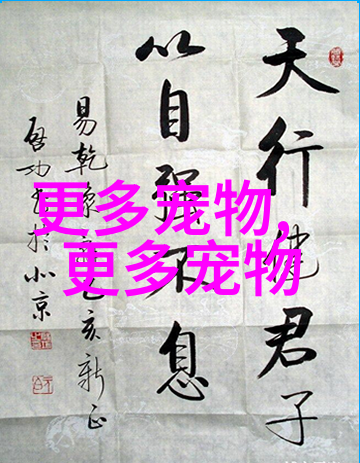 天行健君子
以自强不息
易乾象 亥新正
启功书於北京
更多宠物,
更多宠物